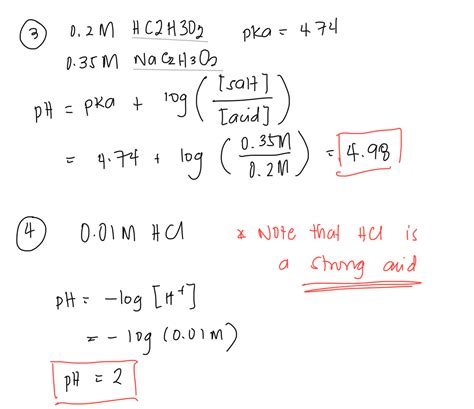 3 0.2M HC2H3O2 pKa = 4.74
0.35M NaC2H3O2
pH = pKa + log ( [salt] / [acid] )
= 4.74 + log ( 0.35M / 0.2M ) = 4.98
4 0.01M HCl * Note that HCl is
a strong acid
pH = -log [H+]
= - log (0.01M)
pH = 2